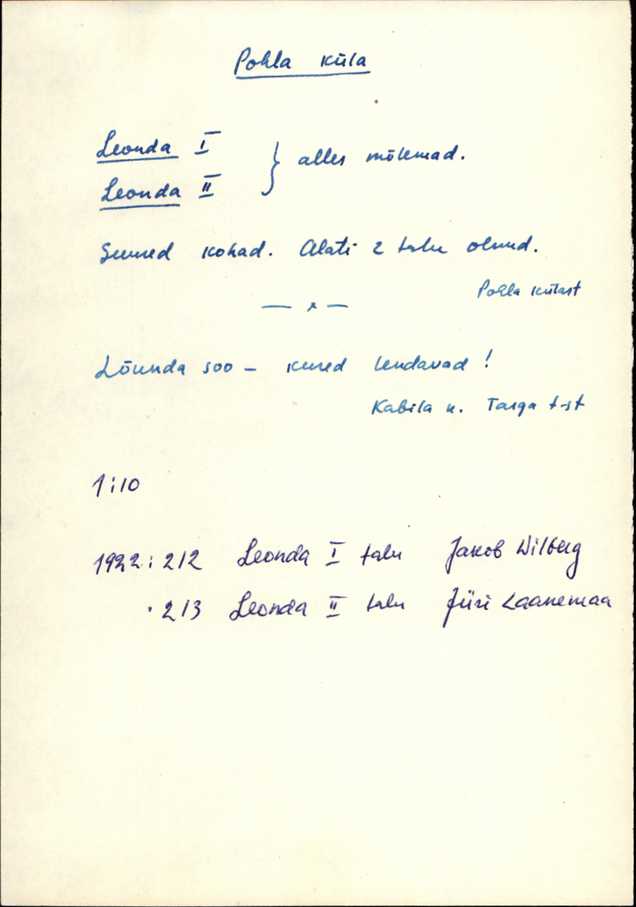 Pohla küla
Leonda I
Leonda II
} alles mõlemad.
Suured kohad. Alati 2 talu olnud.
Pohla külast
— x —
Lõunda soo – kured lendavad!
Kabila k. Targa t-st
1:10
1922: 212 Leonda I talu Jakob Wilberg
213 Leonda II talu Jüri Laanemaa